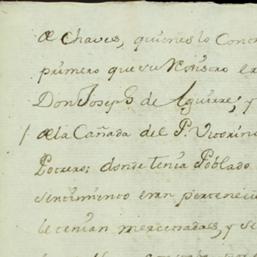 de Chaves, quienes lo Conc
primero que su Rexistro
Don Joseph de Aguirre, y
de la Cañada del P. Victorin
Potrero: donde tenia Poblado
sentimiento eran pertenecie
le tenian mercenadas, y se